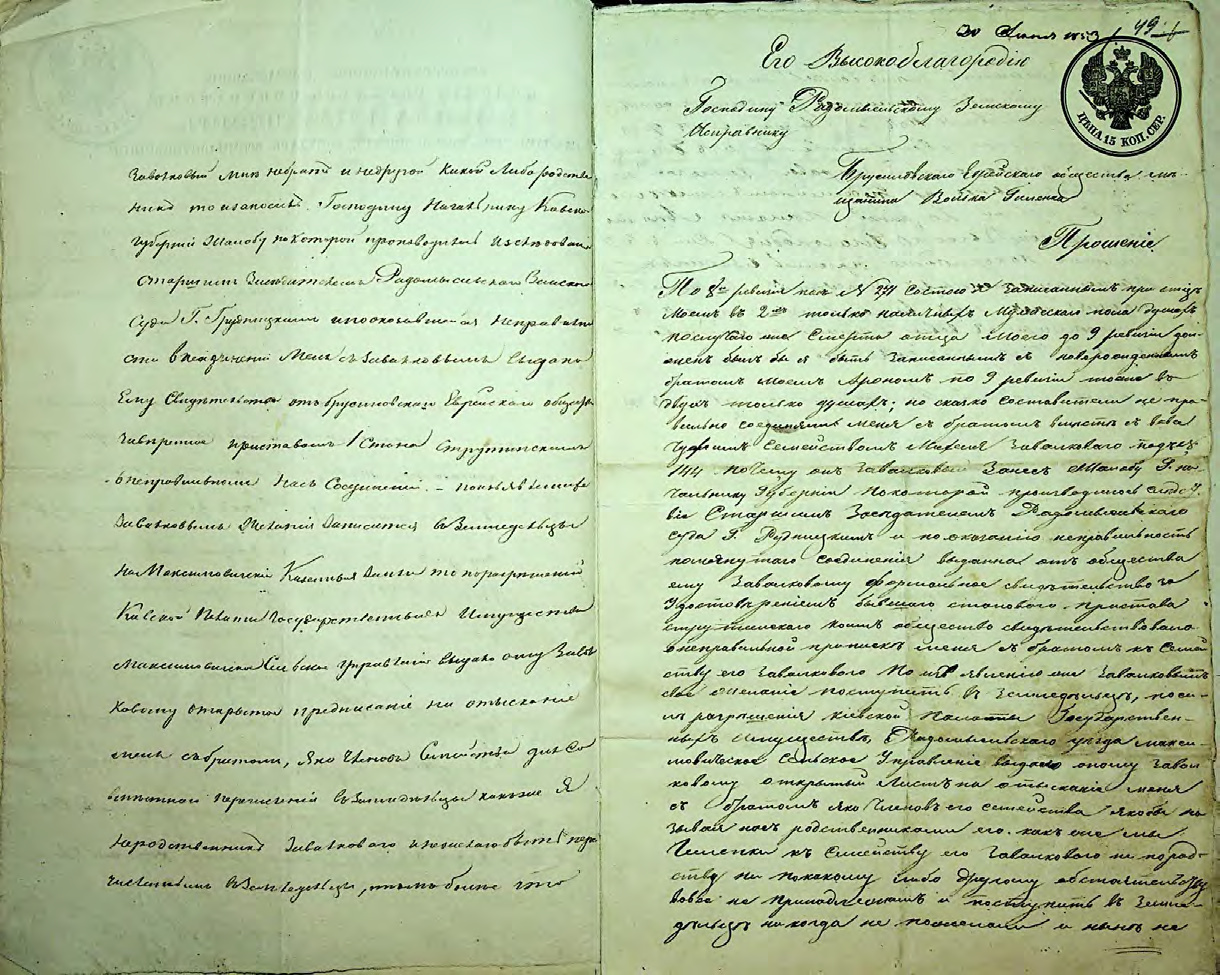 Завалковый мне не братъ и не другой какой либо родстве
никъ то и заносилъ Господину Начальнику Кіевской
Губерніи Жалобу по которой производилъ изследованіе
старшій Заседатель Радомысльскаго Земскаго
Суда Г. Рудницкимъ и по оказавшейся неправильно
сти в соединеніи меня съ Завалковымъ выдано
Ему Свидетельство отъ Брусиловскаго Еврейскаго общества
приставомъ 1 Стана Струтинскимъ
о неправильномъ насъ Соединеніи. –
Завалковымъ желаніи записатся в Земледельцы
на Максимовичскія Казенныя Земли то по разрешенію
Кіевской Палаты Государственныхъ Имуществъ
Максимовичское Сельское Управленіе выдало ему Завал
ковому открытое предписаніе на отысканіе
меня съ братомъ, яко членовъ Семейства для со
вместнаго перечисленія въ Земледельцы каковые Я
не родственникъ Завалковаго и не желаю быть пере
численнымъ в Земледельцы, темъ более что
30 Июня 1853 49
Его Высокоблагородію
Господину Радомысльскому Земскому
Исправнику
ЦѢНА 15 КОП. СЕР.
Брусиловскаго Еврейскаго общества мѣ-
щанина Войтка Гиленка
Прошеніе
По 8й ревизіи подъ N 271 состою я Записаннымъ при отцѣ
моемъ въ 2хъ только наличныхъ Мужескаго пола душахъ
по случаю же Смерти отца моего до 9 ревизіи дол
женъ былъ бы я быть Записаннымъ съ новорожденнымъ
братомъ моемъ Арономъ по 9 ревизіи тоже въ
двухъ только душахъ; но сказко составители не пра
вильно соединяли меня съ братомъ вместѣ съ вовсе
чужимъ Семействомъ Мошка Завалковаго подъ N
144 почему онъ Завалковый занесъ жалобу Г. На
чальнику Губерніи по которой производилось следст
віе Старшимъ Заседателемъ Радомысльскаго
суда Г. Рудницкимъ и по оказанію неправильность
помянутаго соединенія выдана отъ общества
ему Завалковому формальное свидѣтельство за
Удостовѣреніемъ бывшаго становаго пристава
Струтинскаго коимъ общество свидѣтельствовало
о неправильной прописке меня съ братомъ къ Семей
ству его Завалковаго По изъявленію же Завалковымъ
свое желаніе поступить въ Земледѣльцъ, после
и разрешенія Кіевской Палаты Государствен-
ныхъ Имуществъ, Радомысльскаго уезда Макси
мовичское Сельское Управленіе выдало оному Завал
ковому открытый Листъ на отысканіе меня
съ братомъ яко Членовъ его семейства якобы на
зывая насъ родственниками его. какъ же мы
Гиленки къ Семейству его Завалковаго ни по род-
ству ни по какому либо другому обстоятельству
вовсе не принадлежимъ и поступить въ Земле-
дѣльцъ никогда не пожелали и нынѣ не